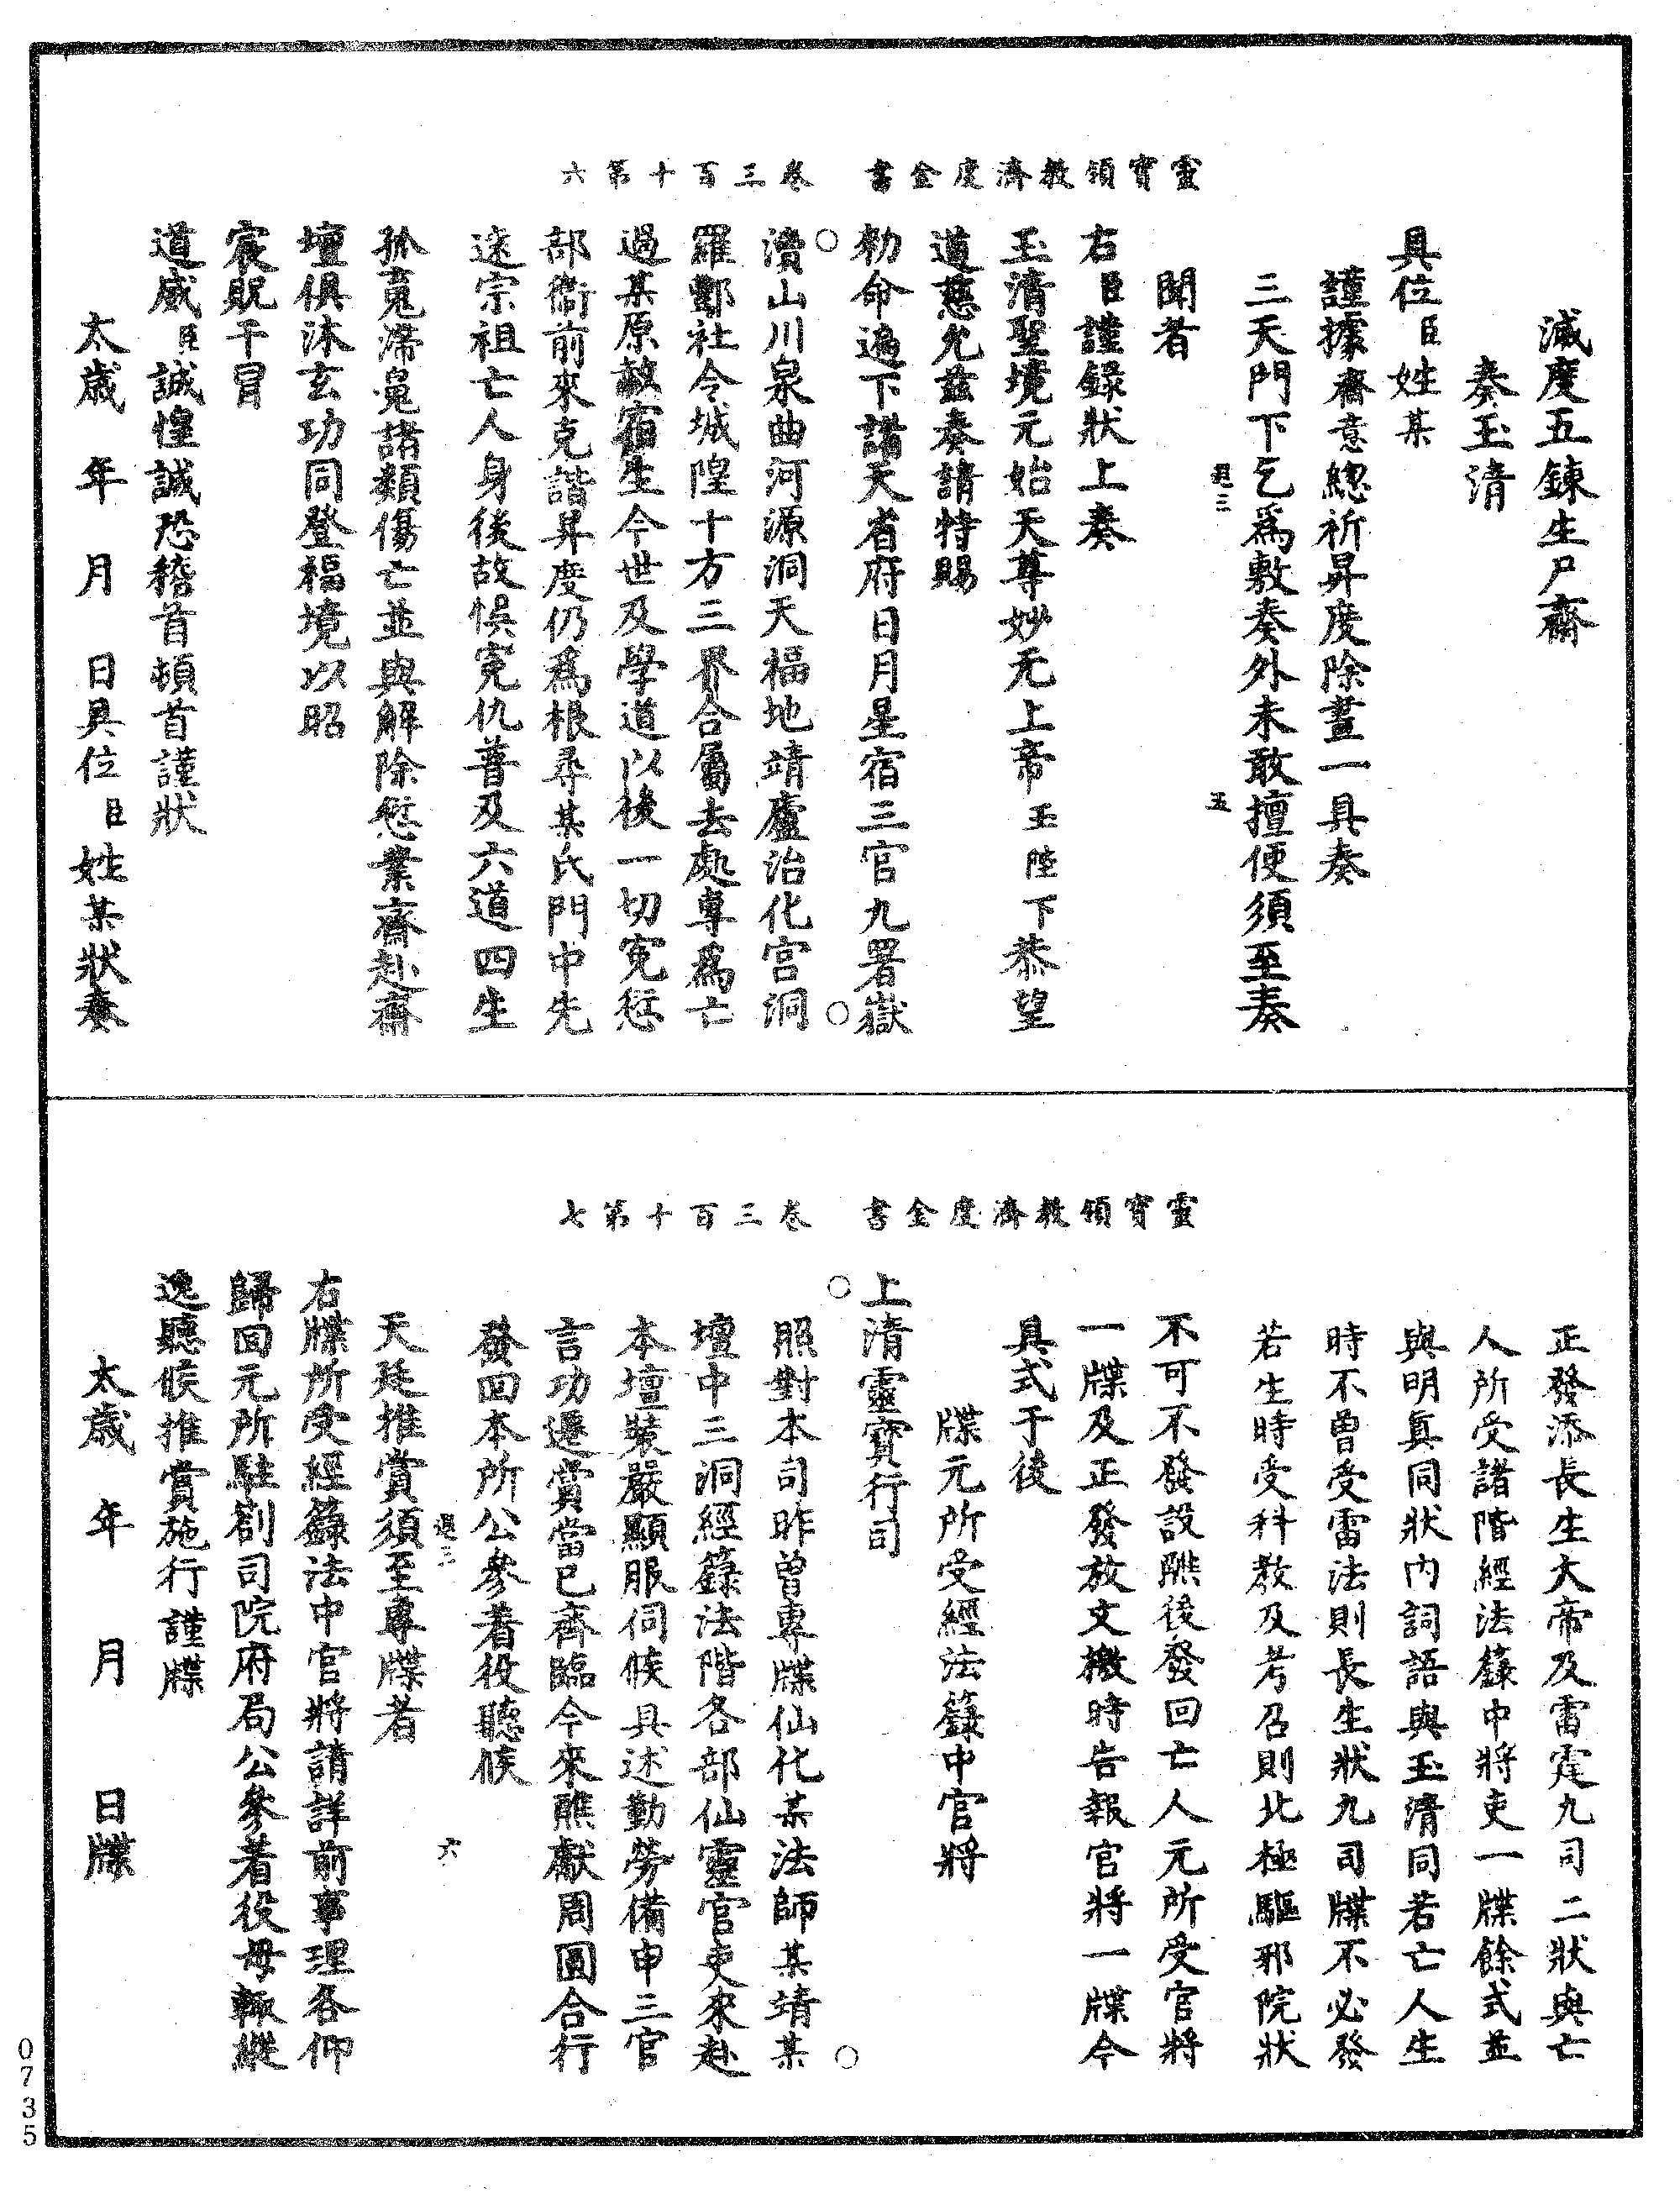 靈寶領教濟度金書　卷三百十第六
滅度五鍊生尸齋
奏玉清
具位臣姓某
謹據齋意總祈昇度除晝一具奏
三天門下乞爲敷奏外未敢擅便須至奏
退三　五
聞者
右臣謹録狀上奏
玉清聖境元始天尊妙无上帝玉陛下恭望
道慈允茲奏請特賜
勑命遍下諸天省府日月星宿三官九署嶽
瀆山川泉曲河源洞天福地靖廬治化宫洞
羅酆社令城隍十方三界合屬去處專爲亡
過某原赦宿生今世及學道以後一切寃愆
部衞前來克諧昇度仍爲根尋某氏門中先
遠宗祖亡人身後故悮寃仇普及六道四生
孤䰟滯鬼諸類傷亡並與解除愆業齊赴齋
壇俱沐玄功同登福境以昭
宸貺干冒
道威臣誠惶誠恐稽首頓首謹狀
太歲　年　月　日具位臣姓某狀奏
靈寶領教濟度金書　卷三百十第七
正發添長生大帝及雷霆九司二狀與亡
人所受諸階經法籙中將吏一牒餘式並
與明真同狀内詞語與玉清同若亡人生
時不曾受雷法則長生狀九司牒不必發
若生時受科教及考召則北極驅邪院狀
不可不發設醮後發回亡人元所受官將
一牒及正發放文檄時告報官將一牒今
具式于後
牒元所受經法籙中官將
上清靈寶行司
照對本司昨曾專牒仙化某法師某靖某
壇中三洞經籙法階各部仙靈官吏來赴
本壇裝嚴顯服伺候具述勤勞備申三官
言功遷賞當已齊臨今來醮獻周圓合行
發回本所公參着役聽候
退三　六
天廷推賞須至專牒者
右牒所受經籙法中官將請詳前事理各仰
歸回元所駐劄司院府局公參着役毋輙縱
逸聽候推賞施行謹牒
太歲　年　月　日牒
0735